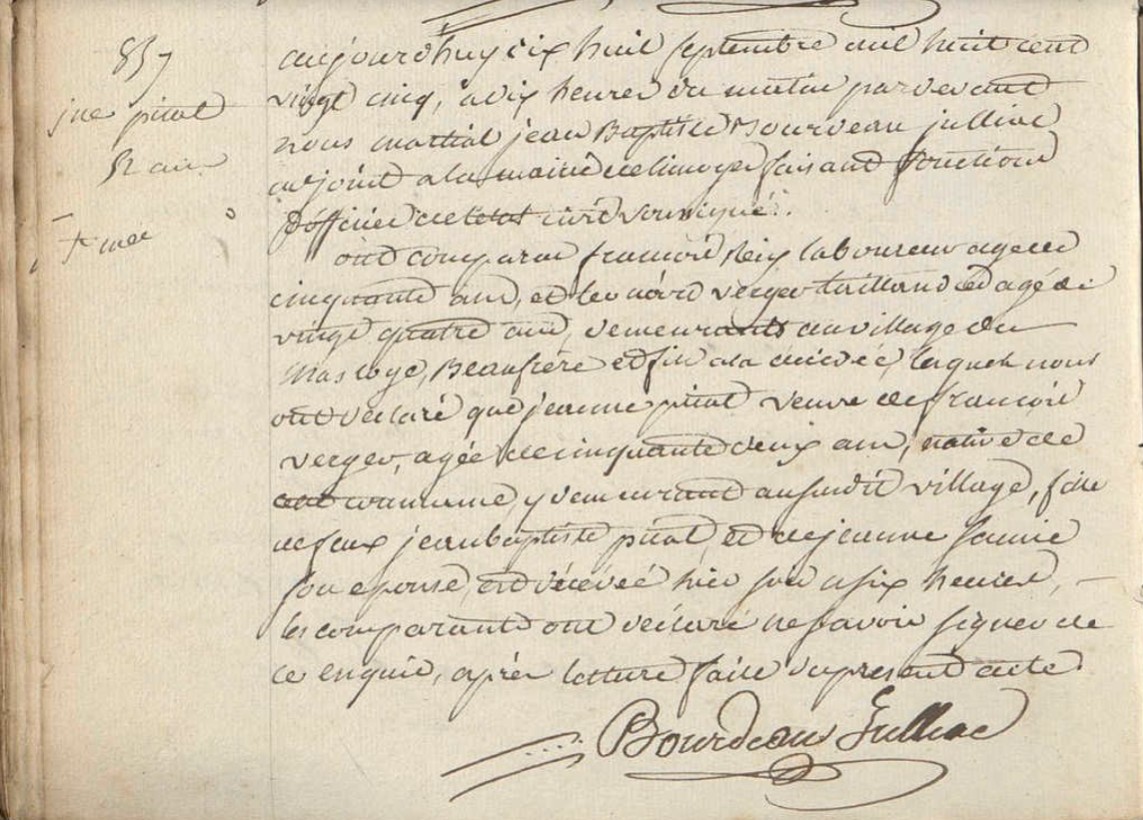 857
jne pinot
52 ans
aujourdhuy dix huit septembre mil huit cent
vingt cinq, a dix heures du matin par devant
nous martial jean Baptiste Bourdeau julliac
adjoint a la mairie de limoges faisant fonctions
d'officier de letat civil soussigné.
ont comparu francois Reix laboureur age de
cinquante ans, et leonard verger taillandier agé de
vingt quatre ans, demeurants au village du
Mas loge, Beaufrère et fils a la décédée, lesquels nous
ont déclaré que jeanne pinot veuve de francois
verger, agée de cinquante deux ans, native de
cette commune, y demeurant au susdit village, fille
de feux jean baptiste pinot, et de jeanne
son epouse, est décédée hier soir a six heures,
les comparants ont déclaré ne savoir signer de
ce enquis, après lecture faite du present acte
Bourdeau Julliac